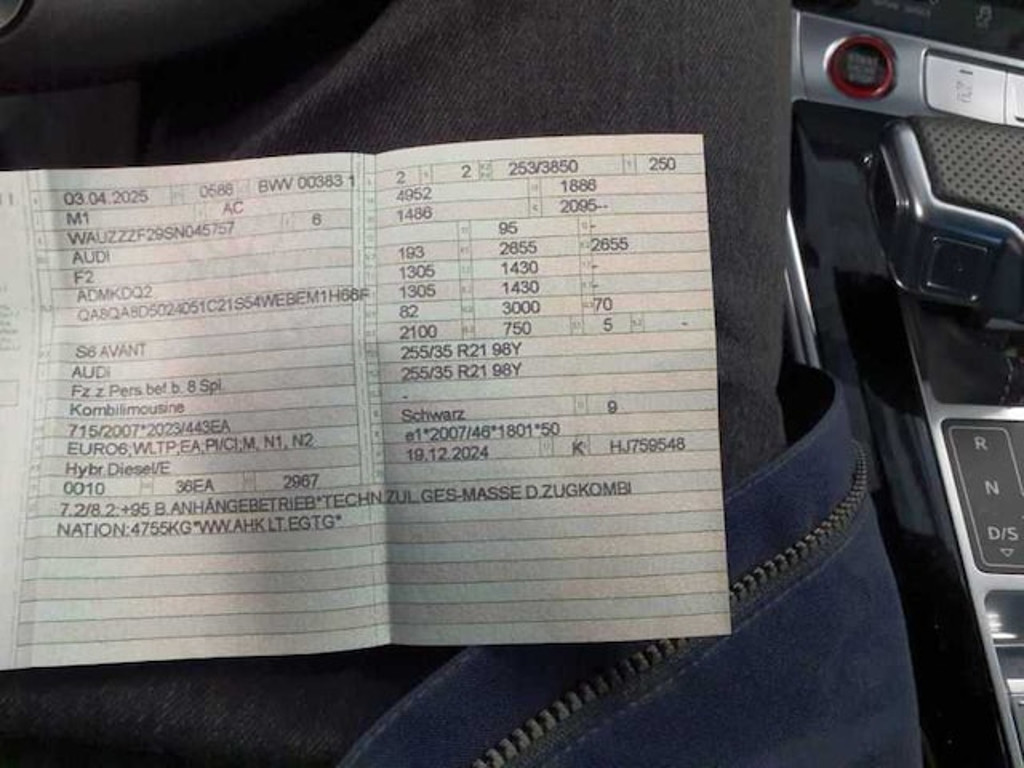 03.04.2025 0588 BWV 00383 1
M1 AC
WAUZZZF29SN045757 6
AUDI
F2
ADMKDQ2
QA8QA8D5024051C21S54WEBEM1H66F
S6 AVANT
AUDI
Fz.z.Pers.bef.b. 8 Spl.
Kombilimousine
715/2007*2023/443EA
EURO6;WLTP;EA;PI/CI;M, N1, N2
Hybr.Diesel/E
0010 36EA 2967
2 2 253/3850 250
4952 1886
1486 2095--
95 -
193 2655 2655
1305 1430 -
1305 1430 -
82 3000 70
2100 750 5 -
255/35 R21 98Y
255/35 R21 98Y
-
Schwarz 9
e1*2007/46*1801*50
19.12.2024 K HJ759548
7.2/8.2:+95 B.ANHÄNGEBETRIEB*TECHN.ZUL.GES-MASSE D.ZUGKOMBI
NATION:4755KG*WW.AHK LT.EGTG*
R
N
D/S